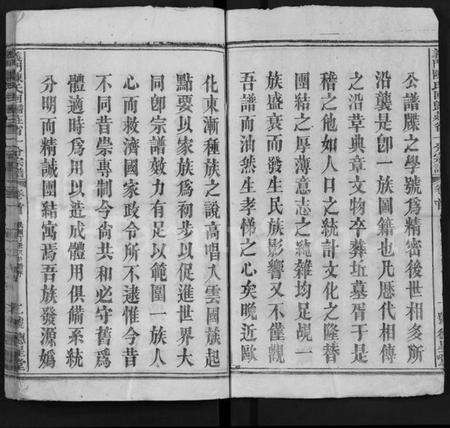 公譜牒之學號為精密後世相多所
沿襲是卽一族圖籍也凡歷代相傳
之沿革典章文物卒葬坵墓胥于是
稽之他如人口之統計文化之隆替
團結之厚薄意志之純雜均足覘一
族盛衰而發生民族影響又不僅覩
吾譜而油然生孝悌之心矣晚近歐
化東漸種族之說高唱入雲國族起
點要以家族為初步以促進世界大
同卽宗譜效力有足以範圍一族人
而救濟國家政令所不逮惟今昔
不同昔崇專制今尙共和必守舊為
體適時為用以造成體用俱備系統
分明而精誠團結寓焉吾族發源嬀